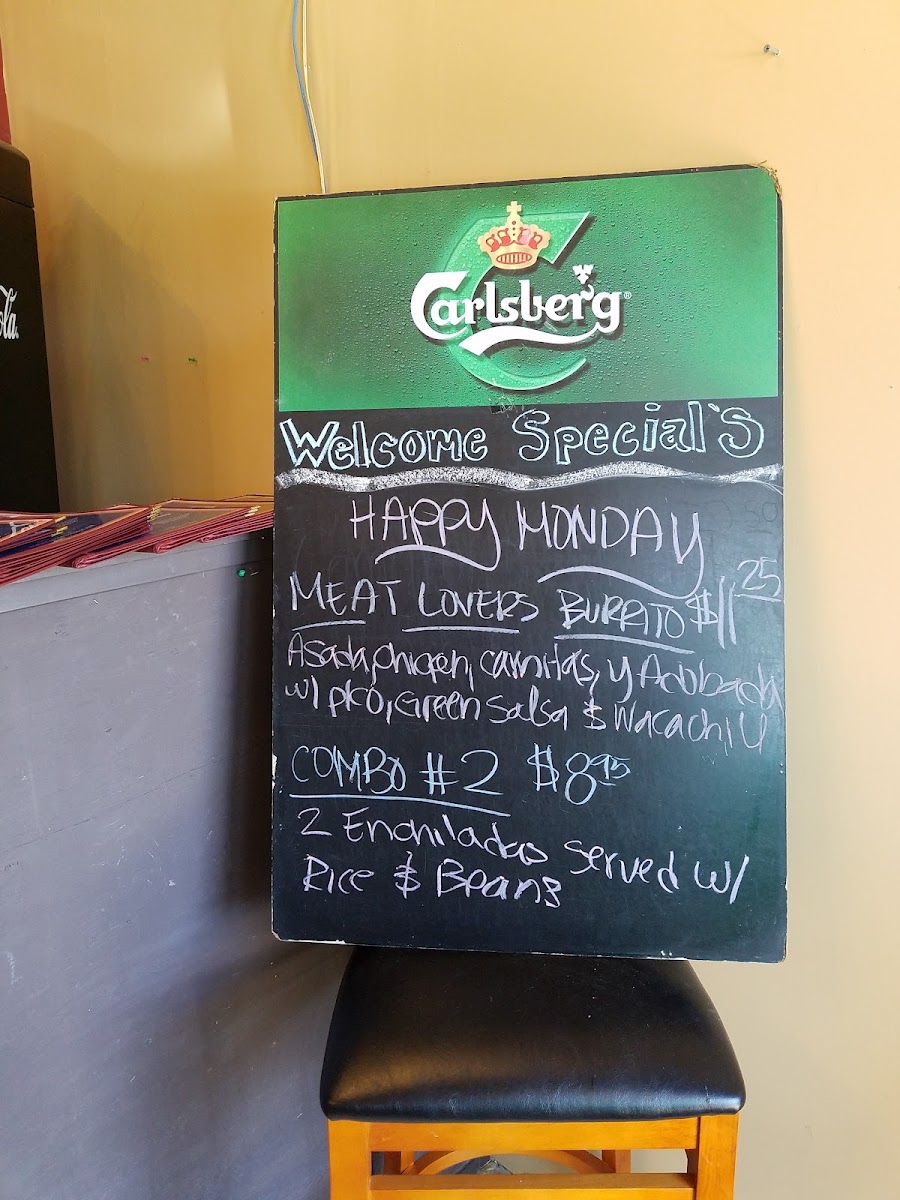 Cola
Carlsberg®
Welcome Special's
HAPPY MONDAY
MEAT LOVERS BURRITO $11 25
Asada, chicken, carnitas, y Adobada
w/ pico, Green Salsa & Wacachili
COMBO #2 $8 95
2 Enchiladas served w/
Rice & Beans